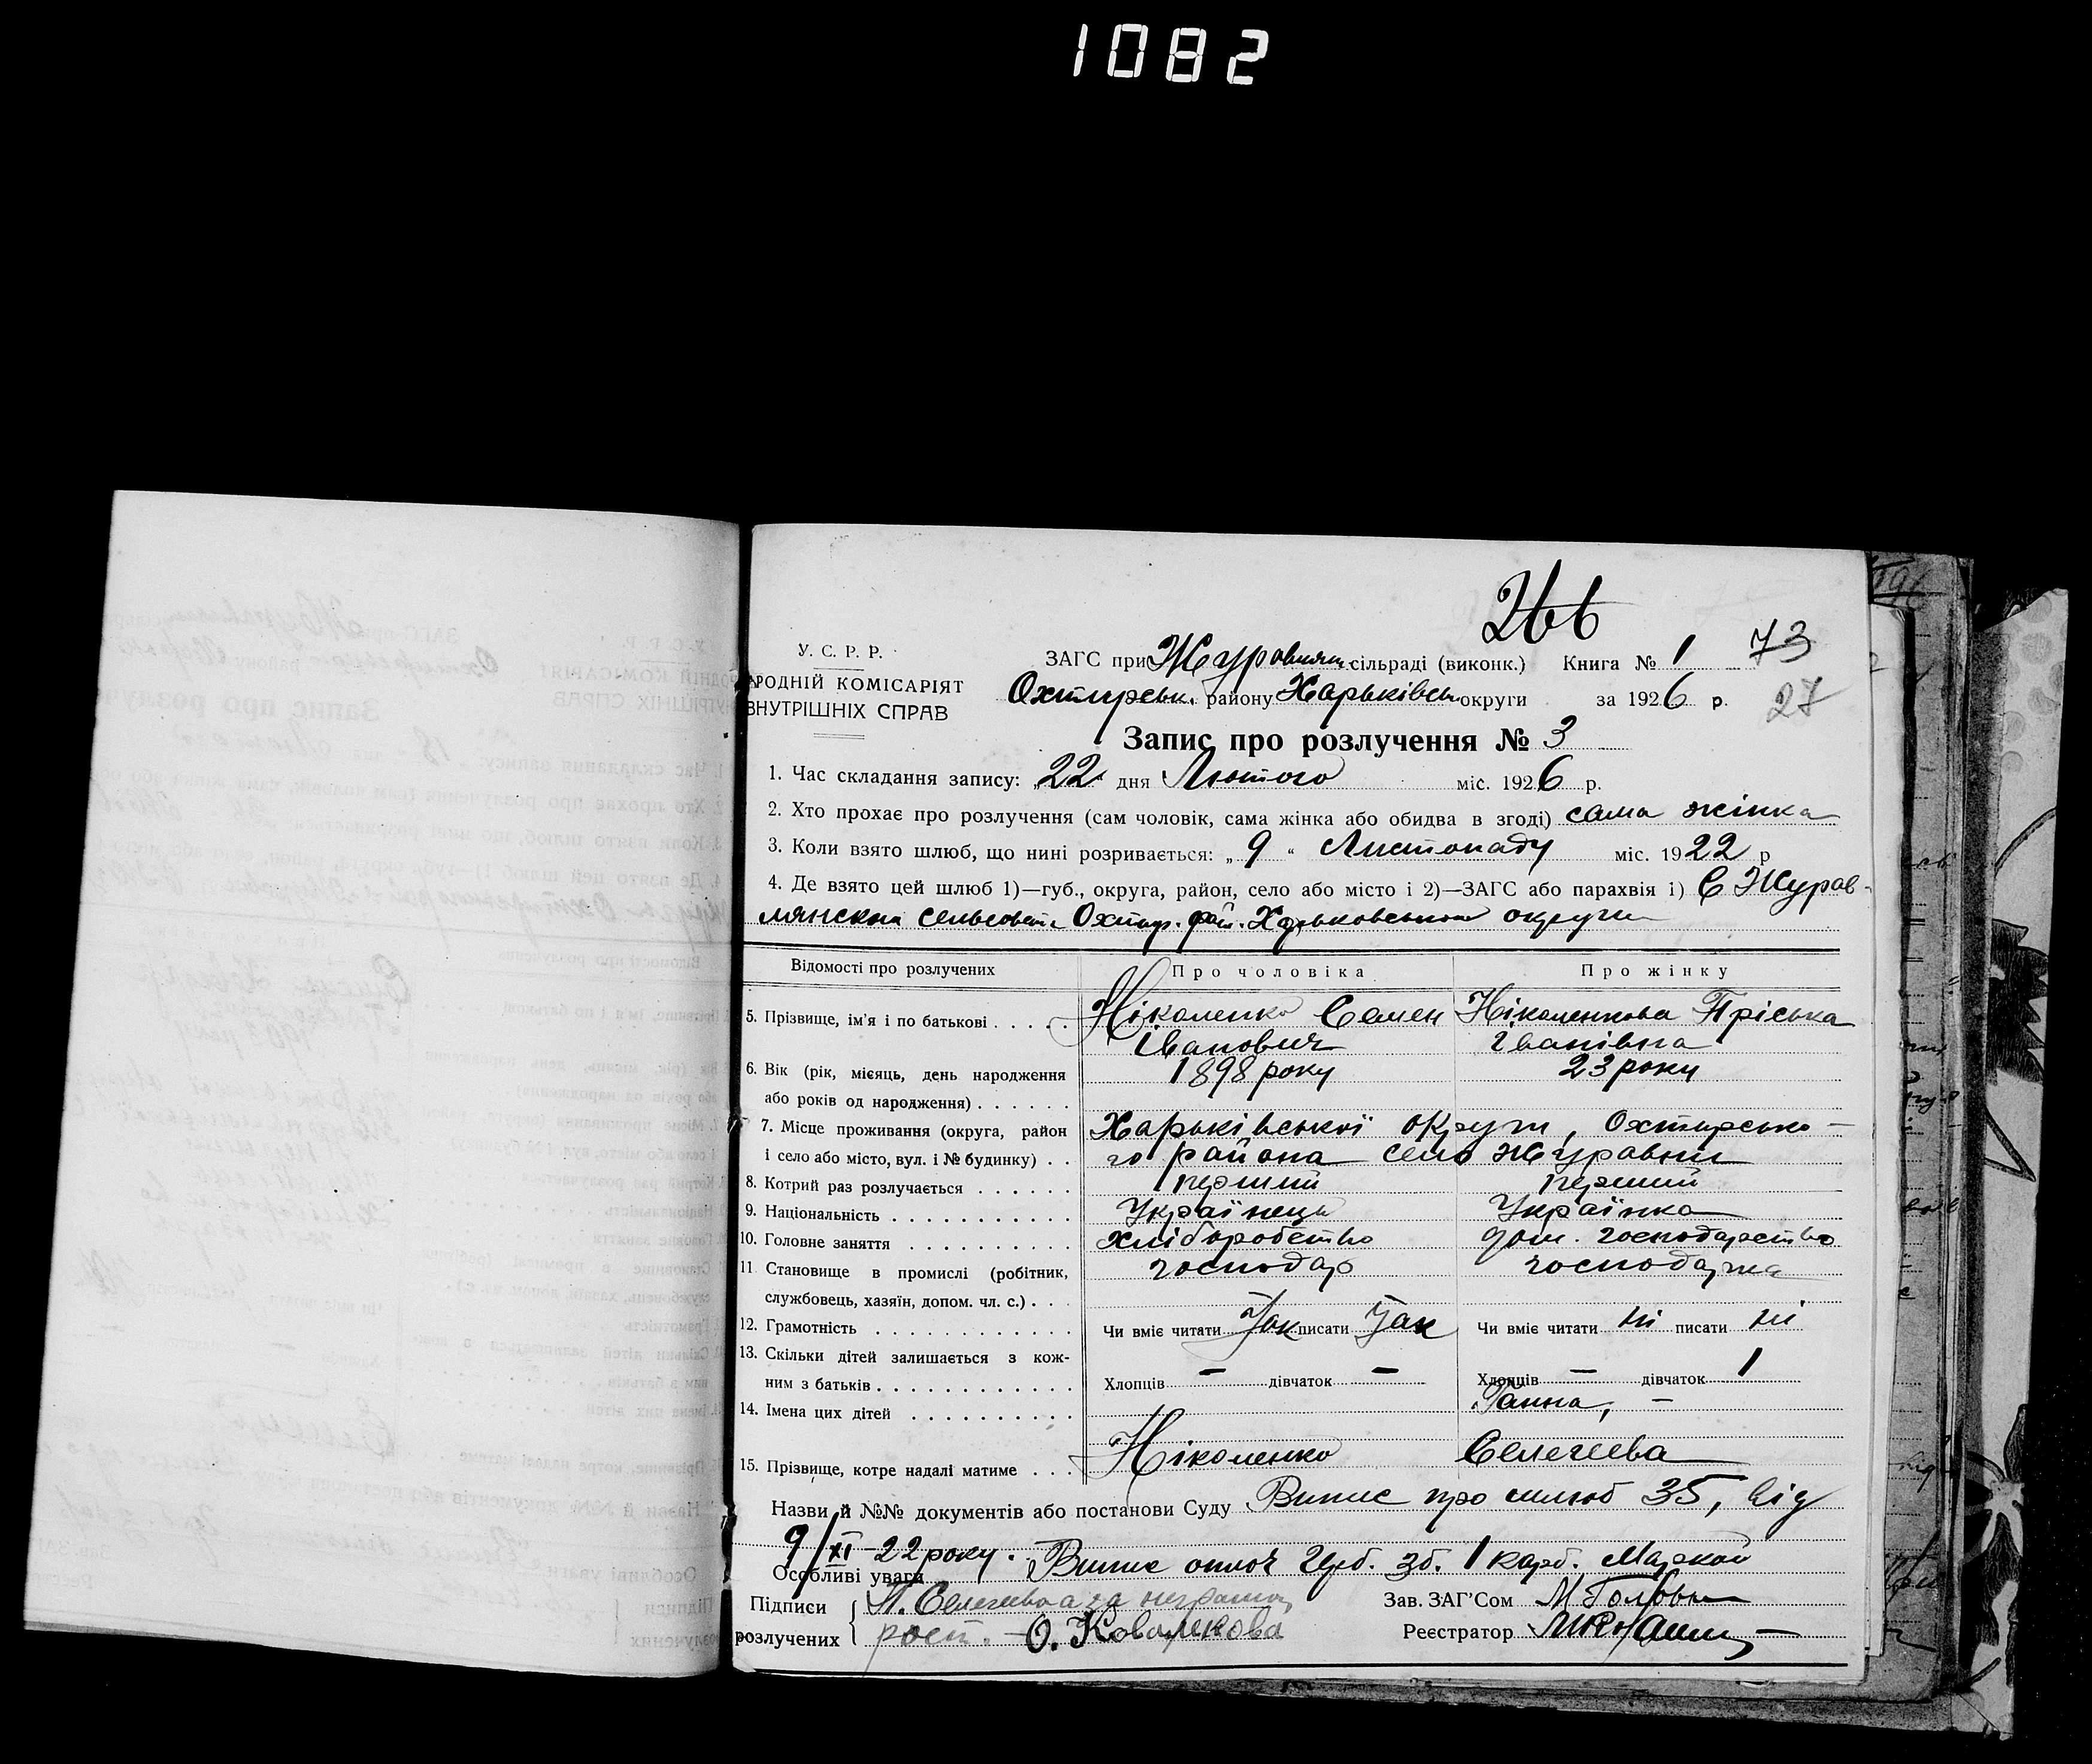 1082
266
У. С. Р. Р.
РОДНІЙ КОМІСАРІЯТ
ВНУТРІШНІХ СПРАВ
ЗАГС при Журавлян. сільраді (виконк.) Книга № 1 73
Охтирськ. району Харьківськ округи за 1926 р. 27
Запис про розлучення № 3
1. Час складання запису: „22" дня Лютого міс. 1926 р.
2. Хто прохає про розлучення (сам чоловік, сама жінка або обидва в згоді) сама жінка
3. Коли взято шлюб, що нині розривається: „ 9 “ Листопаду міс. 1922 р
4. Де взято цей шлюб 1)—губ., округа, район, село або місто і 2)—ЗАГС або парахвія і) С Журав-
лянскпи сельсовети Охтир. рай. Харьковськои округи
Відомості про розлучених Про чоловіка Про жінку
5. Прізвище, ім'я і по батькові . . . . . Ніколенко Семен Ніколенкова Пріська
Іванович Іванівна
6. Вік (рік, мієяць, день народження 1898 року 23 роки
або років од народження) . . . . . .
7. Місце проживання (округа, район Харьківської округи, Охтирсько-
і село або місто, вул. і № будинку) . . го района село Журавни
8. Котрий раз розлучається . . . . . . перший перший
9. Національність . . . . . . . . . . . Українець Українка
10. Головне заняття . . . . . . . . . . хліборобство дом. господарство
11 Становище в промислі (робітник, господар господарка
службовець, хазяїн, допом. чл. с.) . . .
12. Грамотність . . . . . . . . . . . . Чи вміє читати Так писати Так Чи вміє читати ні писати ні
13. Скільки дітей залишається з кож-
ним з батьків . . . . . . . . . . . . Хлопців — дівчаток — Хлопців — дівчаток 1
14. Імена цих дітей . . . . . . . . . . Ганна, —
15. Прізвище, котре надалі матиме . . . Ніколенко Селегеева
Назви й №№ документів або постанови Суду Випис про шлюб 35, від
9/XI-22 року. Випис оплоч Герб. зб. 1 карб. Маркой
Особливі уваги
Підписи П. Селегеева а за неграмот Зав. ЗАГ'Сом
розлучених рост. — О. Ковалекова Реєстратор